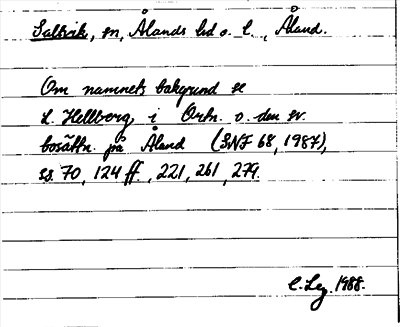 Saltvik, sn, Ålands hd o. l., Åland.
Om namnets bakgrund se
L. Hellberg i Ortn. o. den sv.
bosättn. på Åland (SNF 68, 1987),
ss. 70, 124 ff., 221, 261, 279.
C. Leg. 1988.